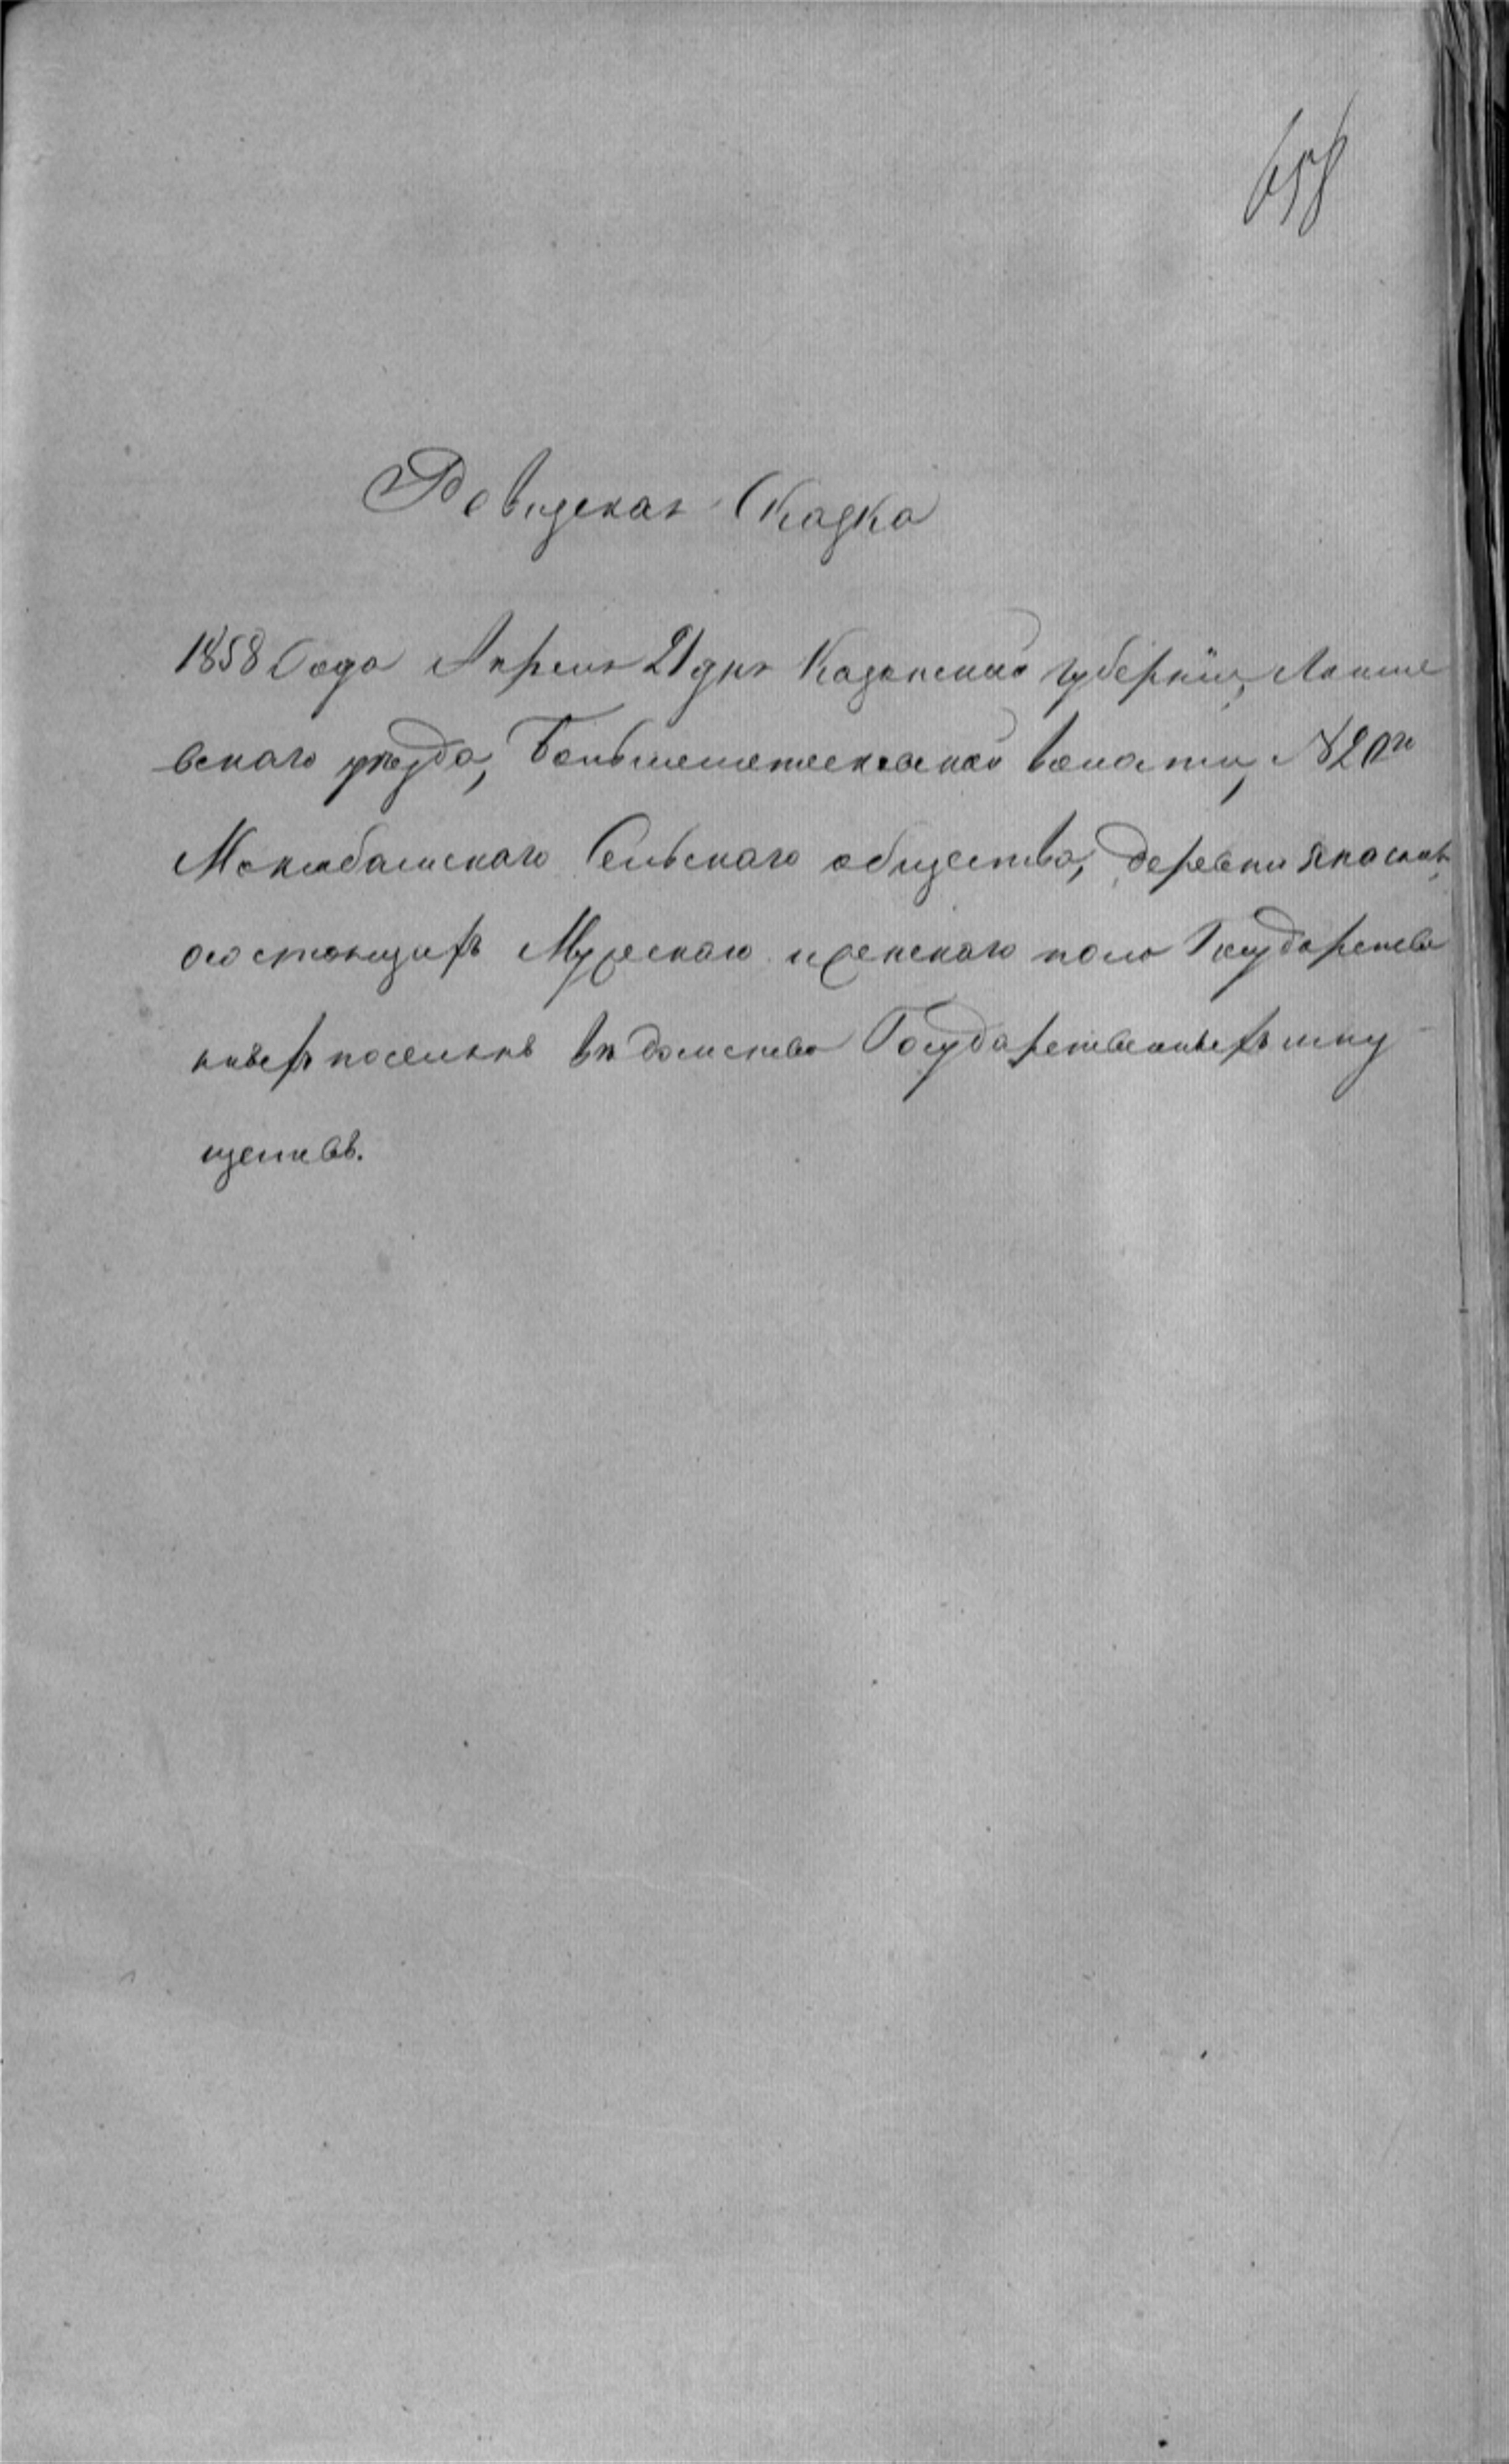 658
Ревизская Сказка
1858 Года Апреля 21 дня Казанской губернiи, Лаише
вскаго уѣзда, Большеметескинской волости, № 20го
сельскаго общества, деревни
о состоящихъ Мужескаго и женскаго пола Государстве
нныхъ поселянъ вѣдомства Государственныхъ иму
ществъ.